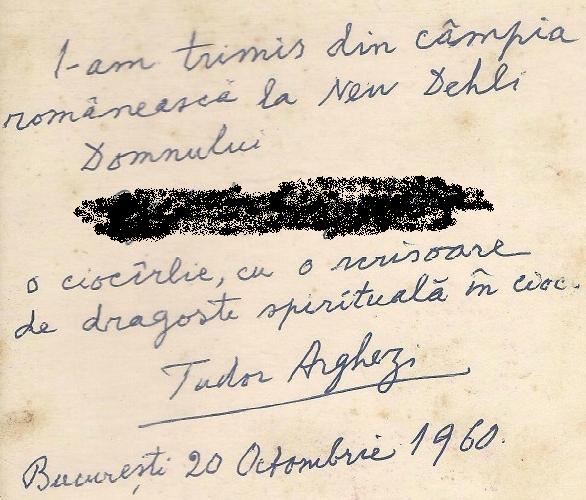 I-am trimis din câmpia
românească la New Dehli
Domnului
o ciocîrlie, cu o scrisoare
de dragoste spirituală în cioc.
Tudor Arghezi
București 20 Octombrie 1960.